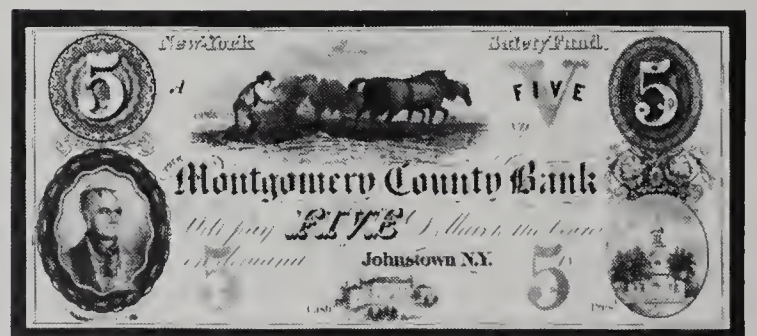 5 New-York Safety Fund. 5
A FIVE V
Montgomery County Bank
Will pay FIVE Dollars to the bearer
on demand Johnstown N.Y.
5 5
Cash Pres